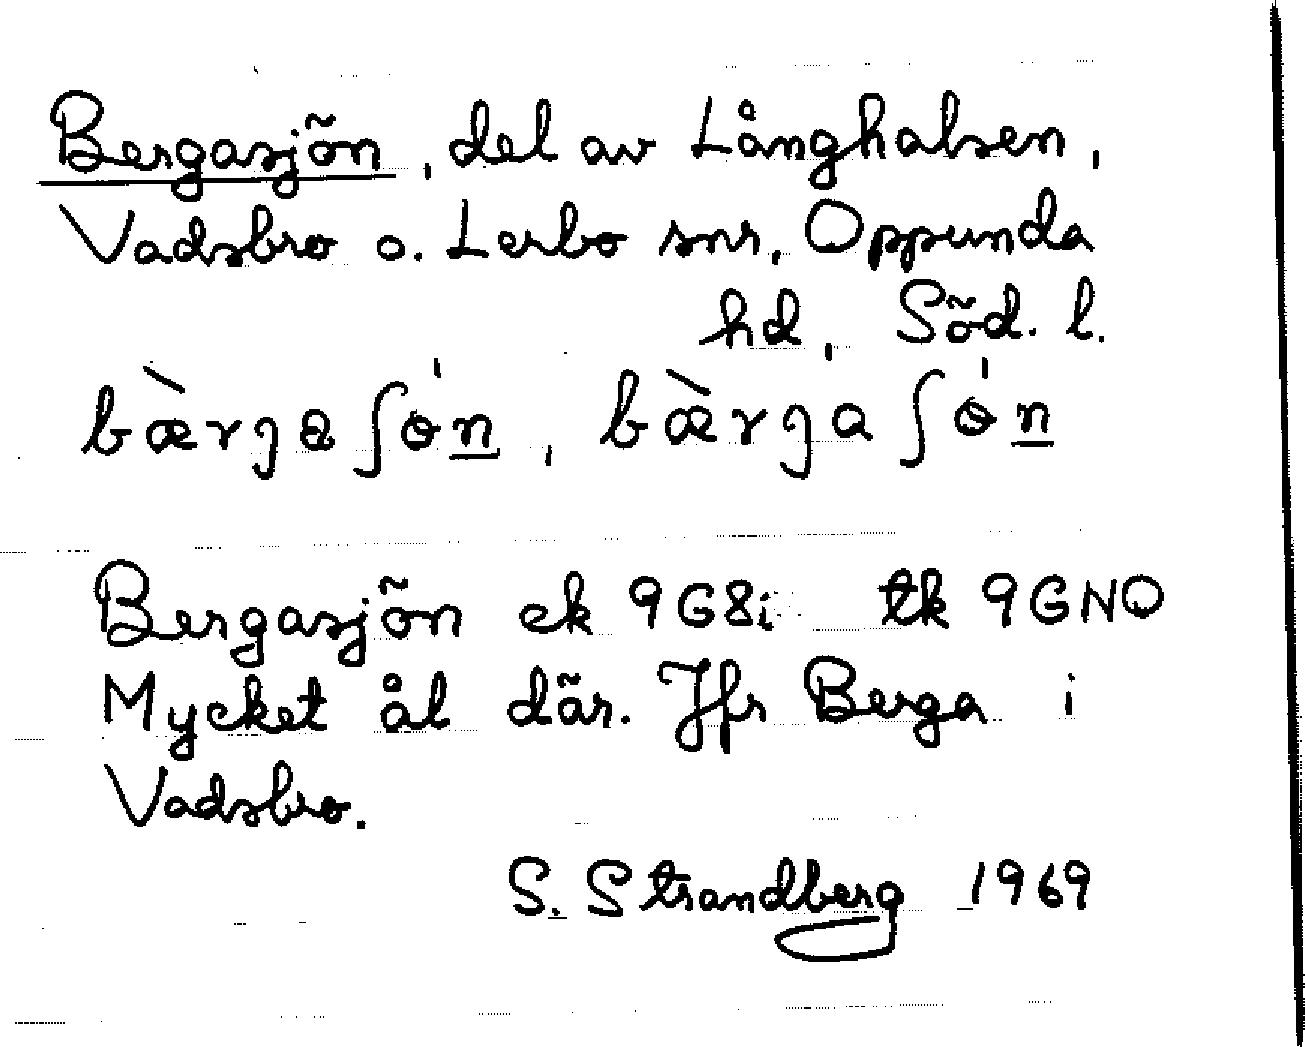 Bergasjön, del av Långhalsen,
Vadsbro o. Lerbo snr, Oppunda
hd, Söd. l.
bæ̀rgɐʃɵ́n, bæ̀rgaʃɵ́n
Bergasjön ek 9G8i tk 9GNO
Mycket ål där. Jfr Berga i
Vadsbro.
S. Strandberg 1969